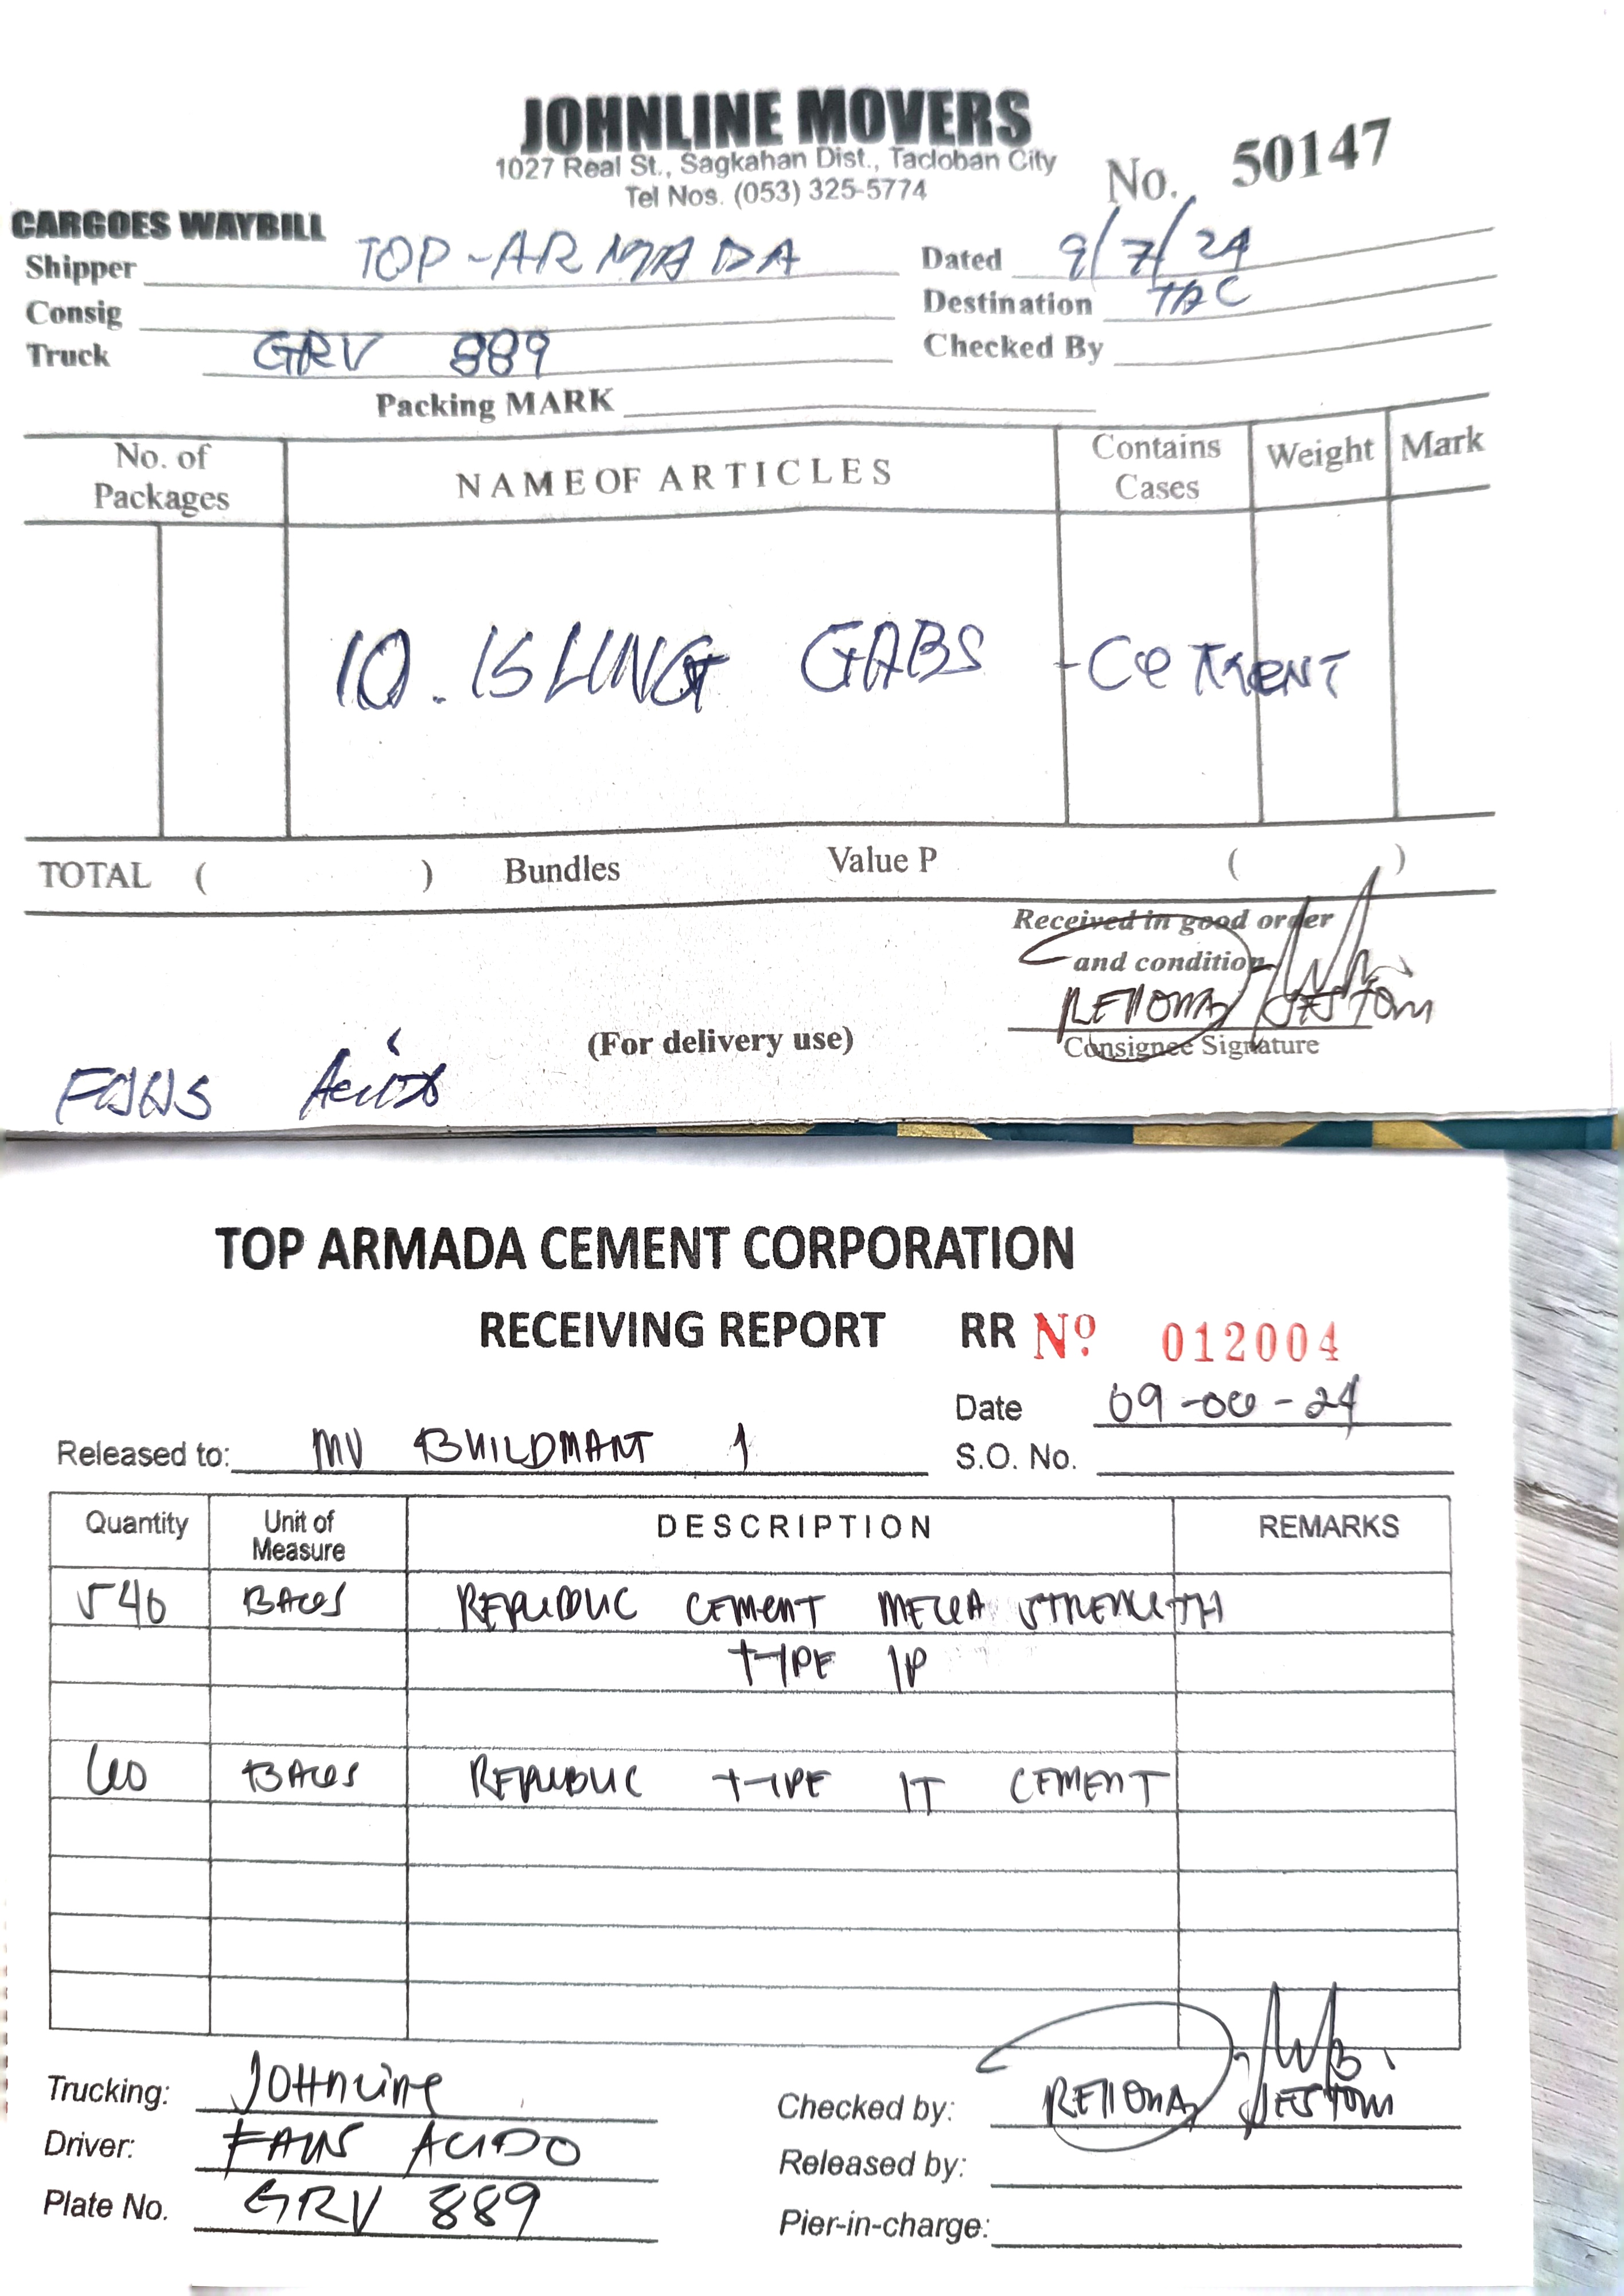 JOHNLINE MOVERS
1027 Real St., Sagkahan Dist., Tacloban City
Tel Nos. (053) 325-5774
No. 50147
CARGOES WAYBILL
Shipper TOP-ARMADA Dated 9/7/24
Consig Destination TAC
Truck GRV 889 Checked By
Packing MARK
No. of Packages NAME OF ARTICLES Contains Cases Weight Mark
10. SLING GABS - CEMENT
TOTAL ( ) Bundles Value P ( )
Received in good order
and condition
(For delivery use)
Consignee Signature
TOP ARMADA CEMENT CORPORATION
RECEIVING REPORT RR Nº 012004
Date 09-06-24
Released to: MV BUILDMART 1 S.O. No.
Quantity Unit of Measure DESCRIPTION REMARKS
540 BAGS REPUBLIC CEMENT MEGA STRENGTH
TYPE 1P
60 BAGS REPUBLIC TYPE 1T CEMENT
Trucking: JOHNLINE
Checked by:
Driver: ACIDO
Released by:
Plate No. GRV 889
Pier-in-charge: